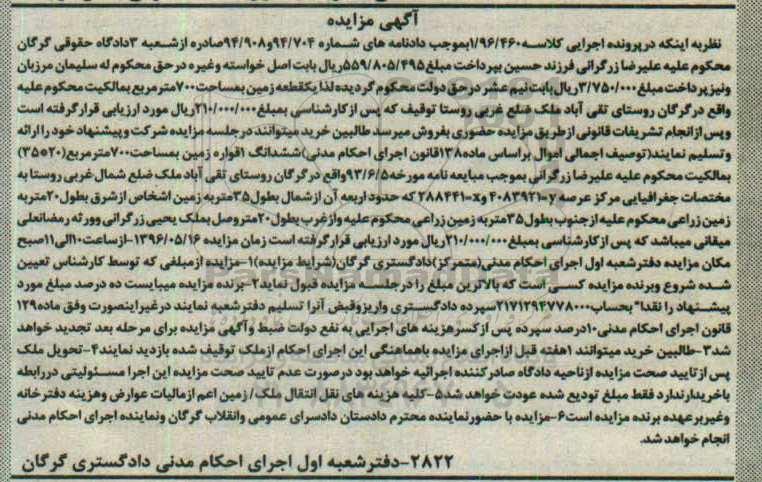 آگهی مزایده
نظر به اینکه در پرونده اجرایی کلاسه ۱/۹۶/۴۶۰ بموجب دادنامه های شماره ۹۴/۷۰۴ و ۹۴/۹۰۸ صادره از شعبه ۳ دادگاه حقوقی گرگان
محکوم علیه علیرضا زرگرانی فرزند حسین بپرداخت مبلغ ۵۵۹/۸۰۵/۴۹۵ ریال بابت اصل خواسته و غیره در حق محکوم له سلیمان مرزبان
و نیز پرداخت مبلغ ۳/۷۵۰/۰۰۰ ریال بابت نیم عشر در حق دولت محکوم گردیده لذا یکقطعه زمین بمساحت ۷۰۰ متر مربع بمالکیت محکوم علیه
واقع در گرگان روستای تقی آباد ملک ضلع غربی روستا توقیف که پس از کارشناسی بمبلغ ۲۱۰/۰۰۰/۰۰۰ ریال مورد ارزیابی قرار گرفته است
و پس از انجام تشریفات قانونی از طریق مزایده حضوری بفروش میرسد طالبین خرید میتوانند در جلسه مزایده شرکت و پیشنهاد خود را ارائه
و تسلیم نمایند (توصیف اجمالی اموال بر اساس ماده ۱۳۸ قانون اجرای احکام مدنی) ششدانگ ۱ قواره زمین بمساحت ۷۰۰ متر مربع (۲۰*۳۵)
بمالکیت محکوم علیه علیرضا زرگرانی بموجب مبایعه نامه مورخه ۹۳/۶/۵ واقع در گرگان روستای تقی آباد ملک ضلع شمال غربی روستا به
مختصات جغرافیایی مرکز عرصه y=۴۰۸۳۹۲۱ و x=۲۸۸۴۴۱ که حدود اربعه آن از شمال بطول ۳۵ متر به زمین اشخاص از شرق بطول ۲۰ متر به
زمین زراعی محکوم علیه از جنوب بطول ۳۵ متر به زمین زراعی محکوم علیه و از غرب بطول ۲۰ متر وصل بملک یحیی زرگرانی و ورثه رمضانعلی
میقانی میباشد که پس از کارشناسی بمبلغ ۲۱۰/۰۰۰/۰۰۰ ریال مورد ارزیابی قرار گرفته است زمان مزایده ۱۳۹۶/۰۵/۱۶-از ساعت ۱۰ الی ۱۱ صبح
مکان مزایده دفتر شعبه اول اجرای احکام مدنی (متمرکز) دادگستری گرگان (شرایط مزایده) ۱-مزایده از مبلغی که توسط کارشناس تعیین
شده شروع و برنده مزایده کسی است که بالاترین مبلغ را در جلسه مزایده قبول نماید ۲-برنده مزایده میبایست ده درصد مبلغ مورد
پیشنهاد را نقدا" بحساب ۲۱۷۱۲۹۴۷۷۸۰۰۰ سپرده دادگستری واریز و قبض آنرا تسلیم دفتر شعبه نمایند در غیر اینصورت وفق ماده ۱۲۹
قانون اجرای احکام مدنی ۱۰ درصد سپرده پس از کسر هزینه های اجرایی به نفع دولت ضبط و آگهی مزایده برای مرحله بعد تجدید خواهد
شد ۳-طالبین خرید میتوانند ۱ هفته قبل از اجرای مزایده باهماهنگی این اجرای احکام از ملک توقیف شده بازدید نمایند ۴-تحویل ملک
پس از تایید صحت مزایده از ناحیه دادگاه صادر کننده اجرائیه خواهد بود در صورت عدم تایید صحت مزایده این اجرا مسئولیتی در رابطه
با خریدار ندارد فقط مبلغ تودیع شده عودت خواهد شد ۵-کلیه هزینه های نقل انتقال ملک / زمین اعم از مالیات عوارض و هزینه دفتر خانه
و غیر بر عهده برنده مزایده است ۶-مزایده با حضور نماینده محترم دادستان دادسرای عمومی وانقلاب گرگان و نماینده اجرای احکام مدنی
انجام خواهد شد.
۲۸۲۲-دفتر شعبه اول اجرای احکام مدنی دادگستری گرگان